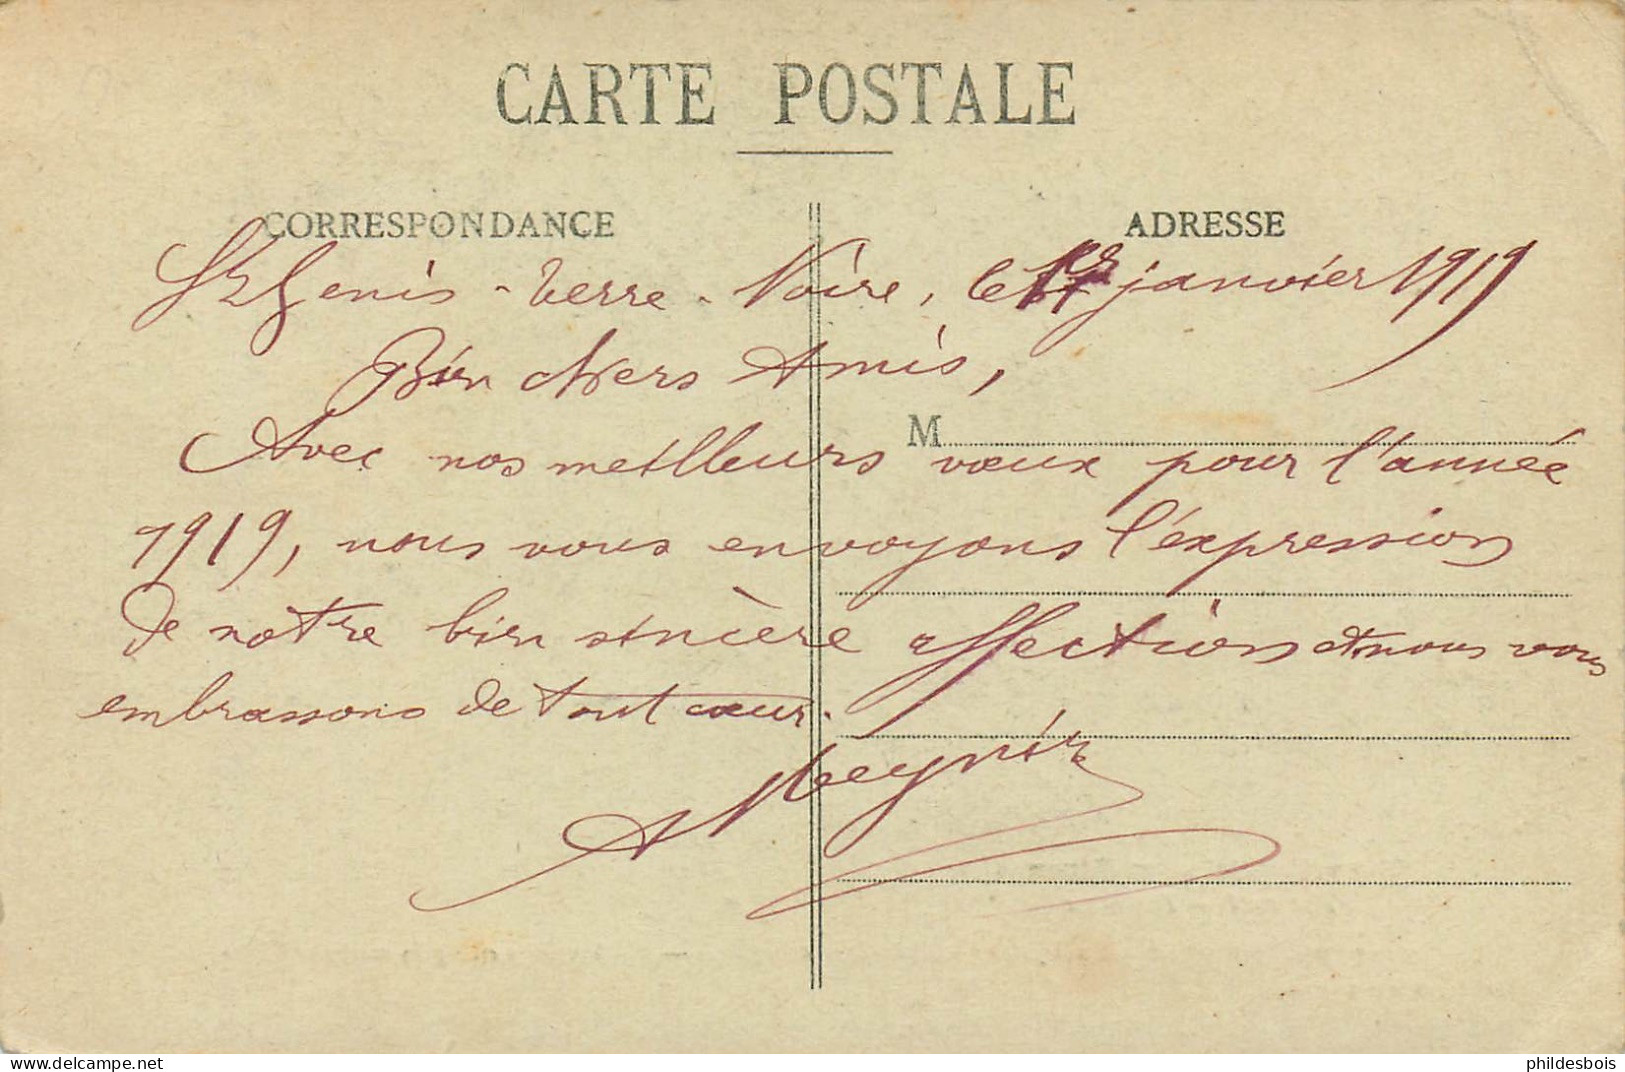 CARTE POSTALE
CORRESPONDANCE
ADRESSE
St Genis-Terre-Noire, le 1er janvier 1919
Bien chers Amis,
M
Avec nos meilleurs vœux pour l'année
1919, nous vous envoyons l'expression
de notre bien sincère affection et nous vous
embrassons de tout cœur.
A Meynier
www.delcampe.net
phildesbois